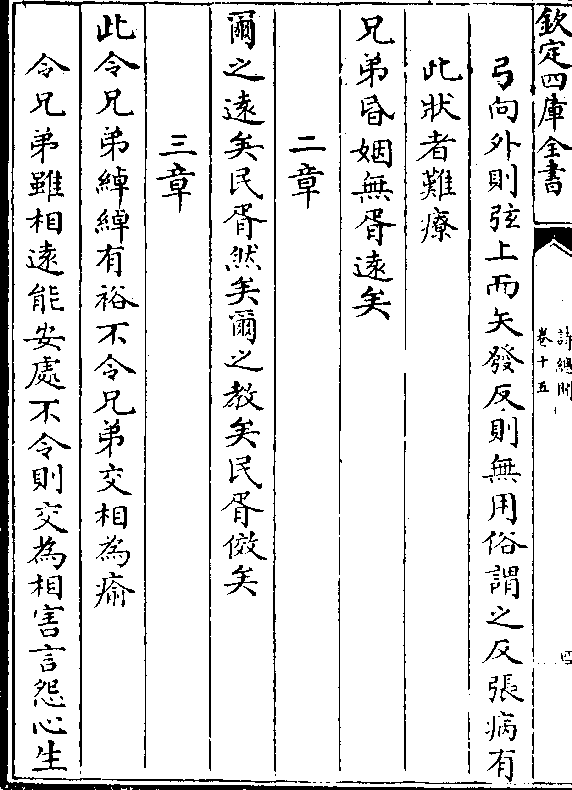 欽定四庫全書
詩總聞
卷十五
四
弓向外則弦上而矢發反則無用俗謂之反張病有
此狀者難療
兄弟昏姻無胥遠矣
二章
爾之遠矣民胥然矣爾之教矣民胥傚矣
三章
此令兄弟綽綽有裕不令兄弟交相為瘉
令兄弟雖相遠能安處不令則交為相害言怨心生